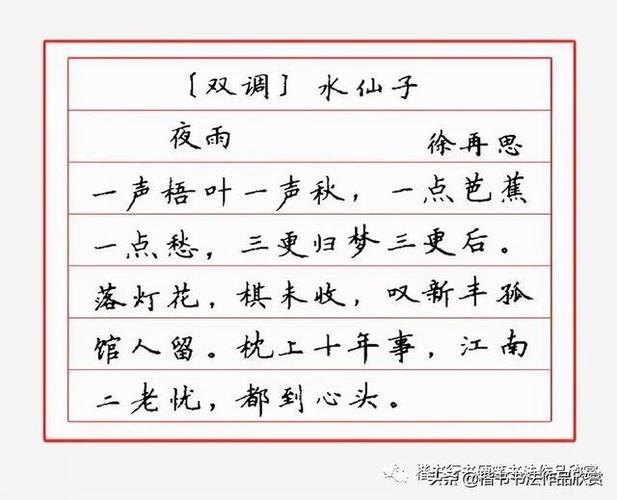 〔双调〕水仙子
夜雨 徐再思
一声梧叶一声秋，一点芭蕉
一点愁，三更归梦三更后。
落灯花，棋未收，叹新丰孤
馆人留。枕上十年事，江南
二老忧，都到心头。
头条@楷书书法作品欣赏